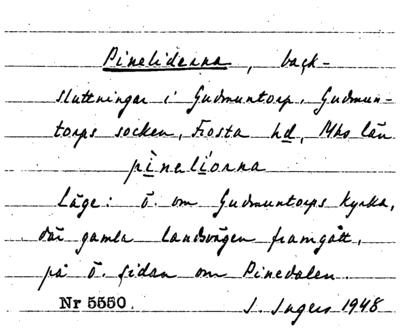 Pineliderna, back-
sluttningar i Gudmuntorp, Gudmun-
torps socken, Frosta hd, Mhs län
pineliorna
Läge: ö. om Gudmuntorps kyrka,
där gamla landsvägen framgått,
på ö. sidan om Pinedalen.
Nr 5550. I. Ingers 1948